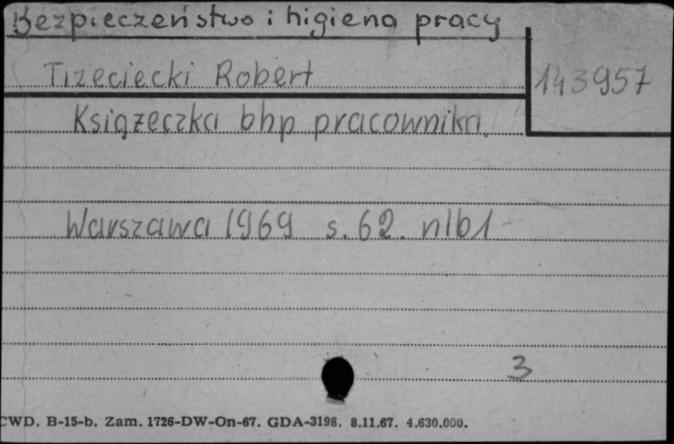 Bezpieczeństwo i higiena pracy
Trzeciecki Robert
143957
Książeczka bhp pracownika.
Warszawa 1969 s. 62. nlb1
3
CWD. B-15-b. Zam. 1726-DW-On-67. GDA-3198. 8.11.67. 4.630.000.